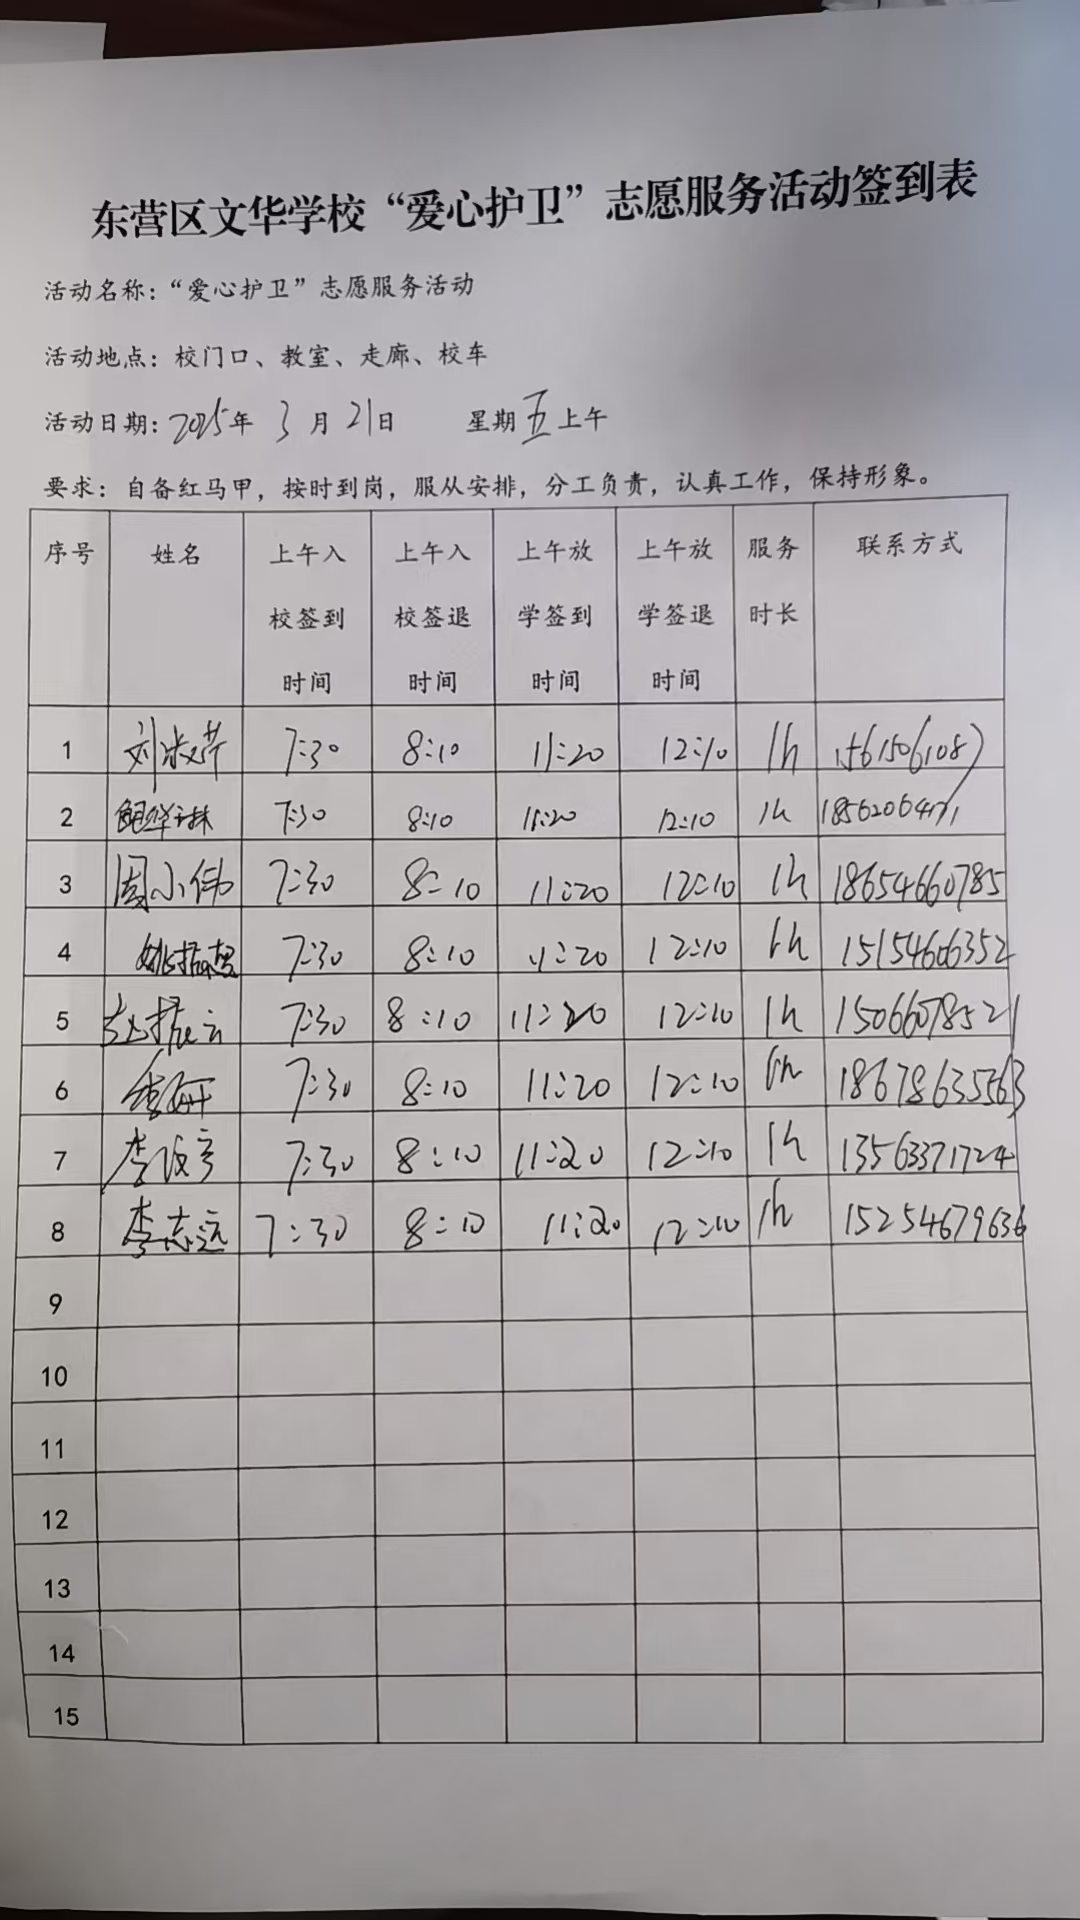 东营区文华学校“爱心护卫”志愿服务活动签到表
活动名称：“爱心护卫”志愿服务活动
活动地点：校门口、教室、走廊、校车
活动日期：2025年 3月21日 星期五上午
要求：自备红马甲，按时到岗，服从安排，分工负责，认真工作，保持形象。
序号 姓名 上午入校签到时间 上午入校签退时间 上午放学签到时间 上午放学签退时间 服务时长 联系方式
1 刘淑芹 7:30 8:10 11:20 12:10 1h 15615061087
2 7:30 8:10 11:20 12:10 1h
3 周小伟 7:30 8:10 11:20 12:10 1h 18654660785
4 姚振超 7:30 8:10 11:20 12:10 1h 15154606352
5 赵振云 7:30 8:10 11:20 12:10 1h 15066078521
6 7:30 8:10 11:20 12:10 1h 18678635563
7 李 7:30 8:10 11:20 12:10 1h 13563371724
8 李志远 7:30 8:10 11:20 12:10 1h 15254679636
9
10
11
12
13
14
15